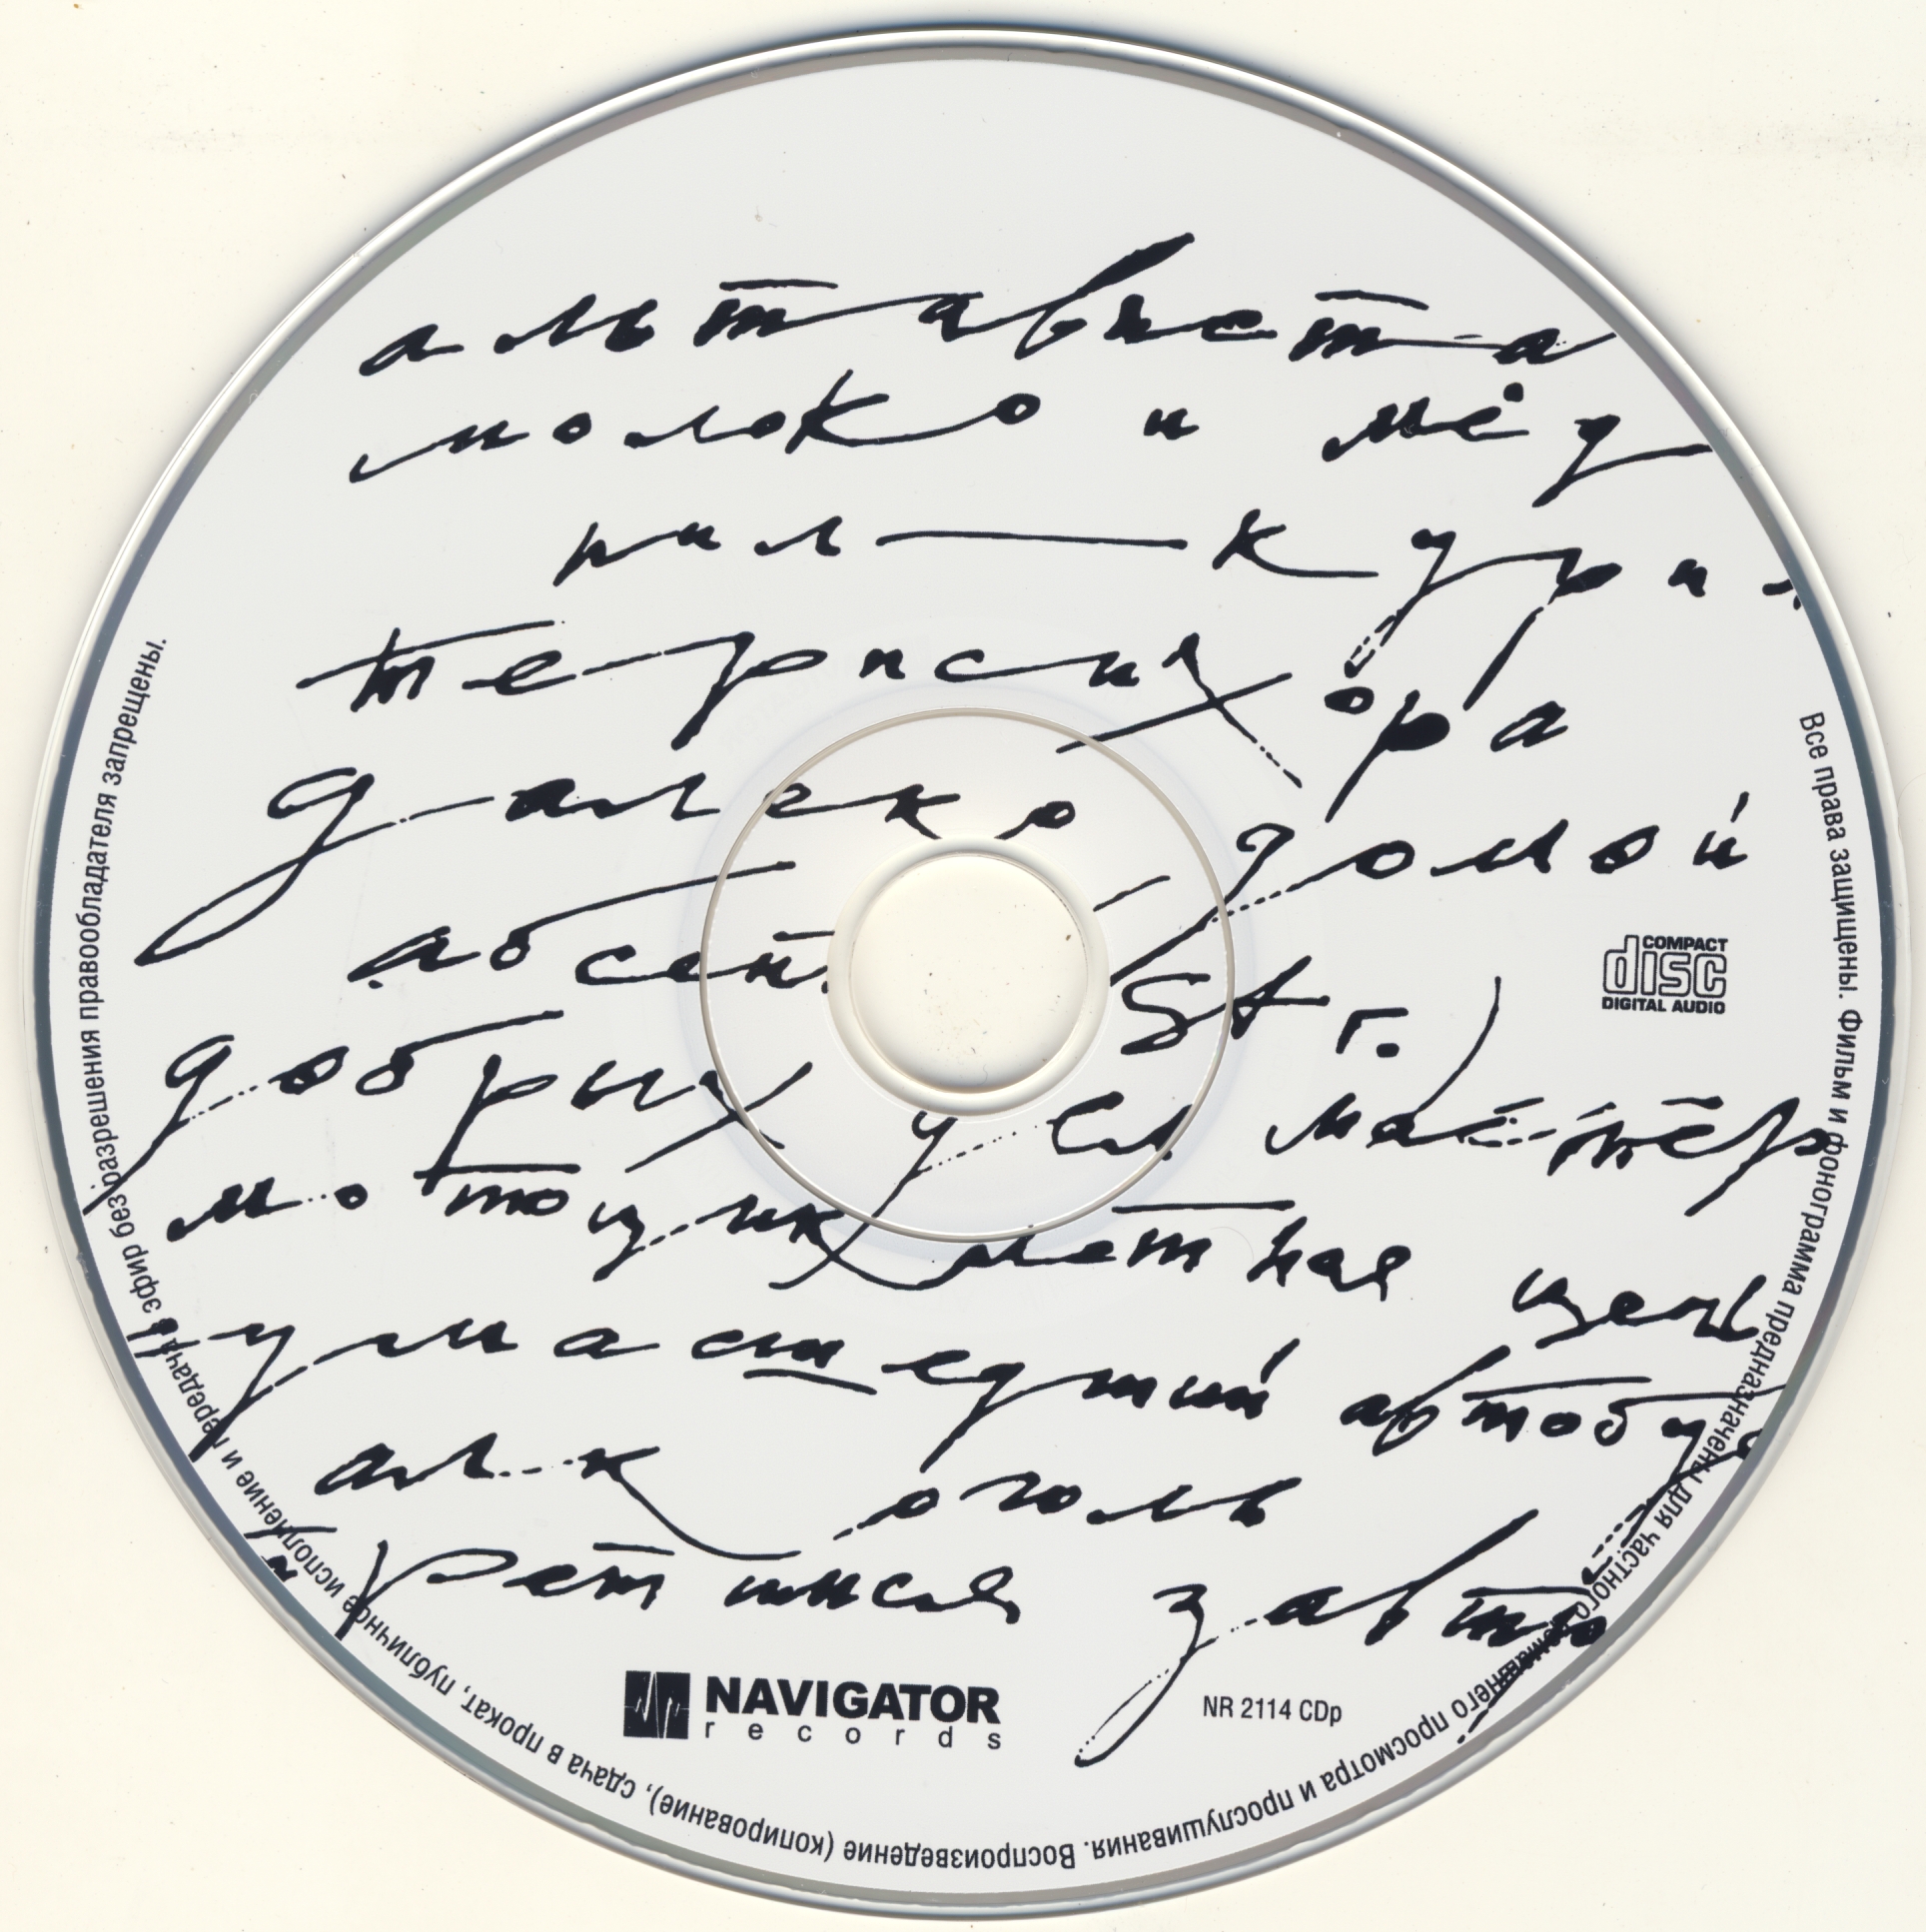 альтависта
молоко и мёд
рил кури
терпсихора
далеко домой
абсент St г.
добрых услы мастер
мотоциклетная цепь
сумасшедший автобус
алкоголь
третился завтр
COMPACT
disc
DIGITAL AUDIO
NAVIGATOR
records
NR 2114 CDp
Все права защищены. Фильм и фонограмма предназначены для частного домашнего просмотра и прослушивания. Воспроизведение (копирование), сдача в прокат, публичное исполнение и передача в эфир без разрешения правообладателя запрещены.